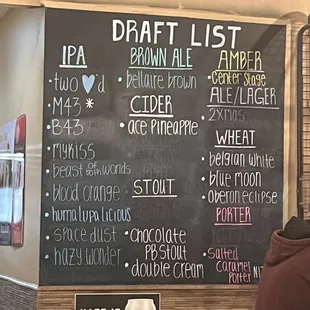 DRAFT LIST
IPA
• two ♥'d
• M43 *
• B43
• mykiss
• beast of both worlds
• blood orange
• huma lupa licious
• space dust
• hazy wonder
BROWN ALE
• bellaire brown
CIDER
• ace Pineapple
STOUT
• chocolate
PB Stout
• double cream
AMBER
• Center Stage
ALE/LAGER
• 2xmas
WHEAT
• belgian white
• blue moon
• oberon eclipse
PORTER
• Salted
Caramel
Porter